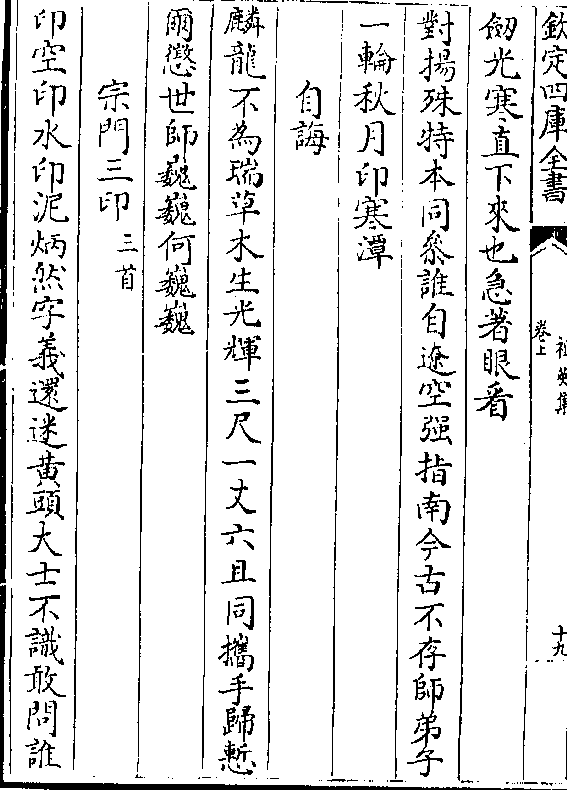 欽定四庫全書
祖英集
卷上
十九
劒光寒直下來也急著眼看
對揚殊特本同叅誰自遼空强指南今古不存師弟子
一輪秋月印寒潭
自誨
麟龍不為瑞草木生光輝三尺一丈六且同攜手歸慙
爾懲世師巍巍何巍巍
宗門三印 三首
印空印水印泥炳然字義還迷黄頭大士不識敢問誰